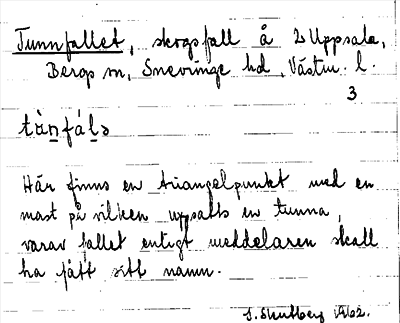 Tunnfallet, skogsfall å L Uppsala,
Bergs sn, Snevringe hd, Västm. l.
3
tùnfál₂
Här finns en triangelpunkt med en
mast på vilken uppsatts en tunna,
varav fallet enligt meddelaren skall
ha fått sitt namn.
S. Strutberg 1962.